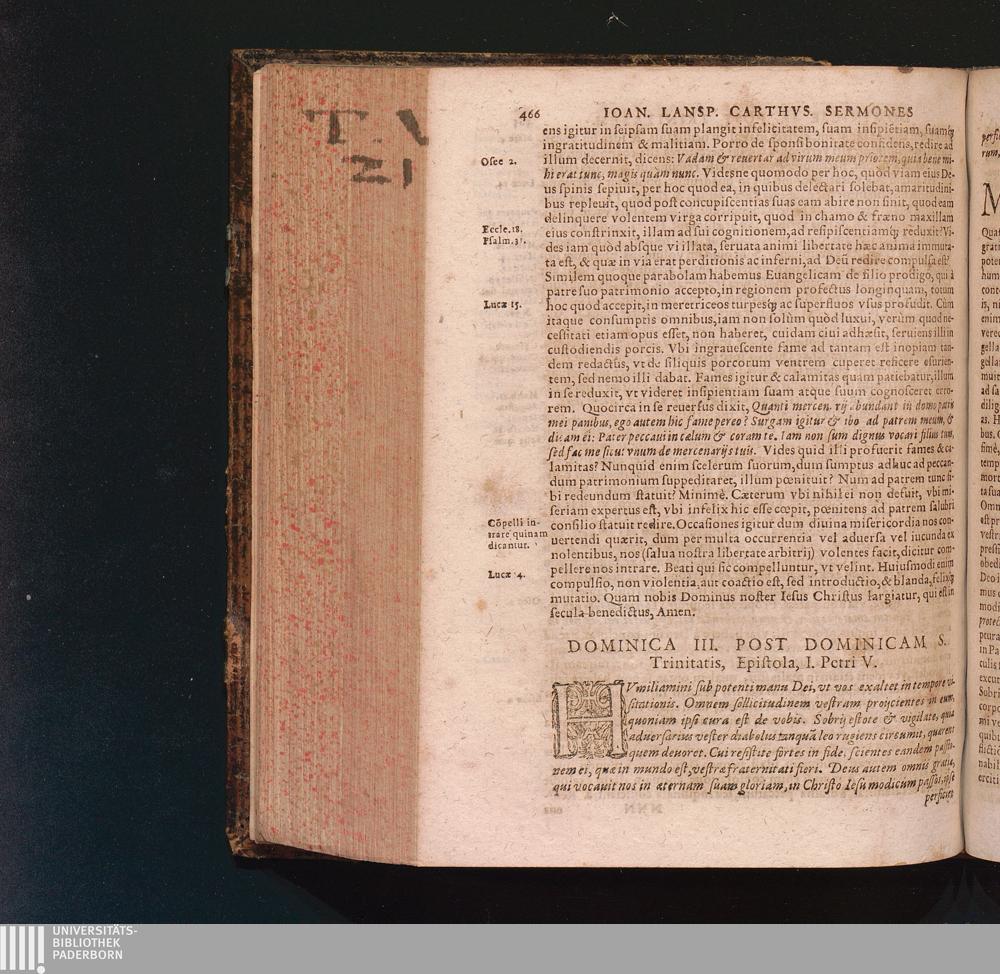 T. V
21
466 IOAN. LANSP. CARTHVS. SERMONES
ens igitur in ſeipſam ſuam plangit infelicitatem, ſuam inſipiẽtiam, ſuamq́;
ingratitudinem & malitiam. Porro de ſponſi bonitate confidens, redire ad
Oſee 2.
illum decernit, dicens: Vadam & reuertar ad virum meum priorem, quia bene mi-
hi erat tunc, magis quàm nunc. Videsne quomodo per hoc, quòd viam eius De-
us ſpinis ſepiuit, per hoc quod ea, in quibus delectari ſolebat, amaritudini-
bus repleuit, quod poſt concupiſcentias ſuas eam abire non ſinit, quod eam
delinquere volentem virga corripuit, quod in chamo & fræno maxillam
Eccle. 18.
Pſalm. 31.
eius conſtrinxit, illam ad ſui cognitionem, ad reſipiſcentiamq́; reduxit? Vi-
des iam quòd abſque vi illata, ſeruata animi libertate hæc anima immuta-
ta eſt, & quæ in via erat perditionis ac inferni, ad Deũ redire compulſa eſt?
Similem quoque parabolam habemus Euangelicam de filio prodigo, qui à
patre ſuo patrimonio accepto, in regionem profectus longinquam, totum
Lucæ 15.
hoc quod accepit, in meretriceos turpesq́; ac ſuperfluos vſus profudit. Cùm
itaque conſumptis omnibus, iam non ſolùm quòd luxui, verùm quod ne-
ceſſitati etiam opus eſſet, non haberet, cuidam ciui adhæſit, ſeruiens illi in
cuſtodiendis porcis. Vbi ingraueſcente fame ad tantam eſt inopiam tan-
dem redactus, vt de ſiliquis porcorum ventrem cuperet reficere eſurien-
tem, ſed nemo illi dabat. Fames igitur & calamitas quam patiebatur, illum
in ſe reduxit, vt videret inſipientiam ſuam atque ſuum cognoſceret erro-
rem. Quocirca in ſe reuerſus dixit, Quanti mercenarij abundant in domo patris
mei panibus, ego autem hic fame pereo? Surgam igitur & ibo ad patrem meum, &
dicam ei: Pater peccaui in cælum & coram te. Iam non ſum dignus vocari filius tuus,
ſed fac me ſicut vnum de mercenarijs tuis. Vides quid illi profuerit fames & ca-
lamitas? Nunquid enim ſcelerum ſuorum, dum ſumptus adhuc ad peccan-
dum patrimonium ſuppeditaret, illum pœnituit? Num ad patrem tunc ſi-
bi redeundum ſtatuit? Minimè. Cæterum vbi nihil ei non defuit, vbi mi-
ſeriam expertus eſt, vbi infelix hic eſſe cœpit, pœnitens ad patrem ſalubri
Cõpelli in-
trare quinam
dicantur.
conſilio ſtatuit redire. Occaſiones igitur dum diuina miſericordia nos con-
uertendi quærit, dum per multa occurrentia vel aduerſa vel iucunda ex
nolentibus, nos (ſalua noſtra libertate arbitrij) volentes facit, dicitur com-
pellere nos intrare. Beati qui ſic compelluntur, vt velint. Huiuſmodi enim
Lucæ 14.
compulſio, non violentia, aut coactio eſt, ſed introductio, & blanda, felixq́;
mutatio. Quam nobis Dominus noſter Ieſus Chriſtus largiatur, qui eſt in
ſecula benedictus, Amen.
DOMINICA III. POST DOMINICAM S.
Trinitatis, Epiſtola, I. Petri V.
HVmiliamini ſub potenti manu Dei, vt vos exaltet in tempore vi-
ſitationis. Omnem ſollicitudinem veſtram proijcientes in eum,
quoniam ipſi cura eſt de vobis. Sobrij eſtote & vigilate, quia
aduerſarius veſter diabolus tanquã leo rugiens circumit, quærens
quem deuoret. Cui reſiſtite fortes in fide, ſcientes eandem paſſio-
nem ei, quæ in mundo eſt, veſtræ fraternitati fieri. Deus autem omnis gratiæ,
qui vocauit nos in æternam ſuam gloriam, in Chriſto Ieſu modicum paſſos, ipſe
perficiet
UNIVERSITÄTS-
BIBLIOTHEK
PADERBORN